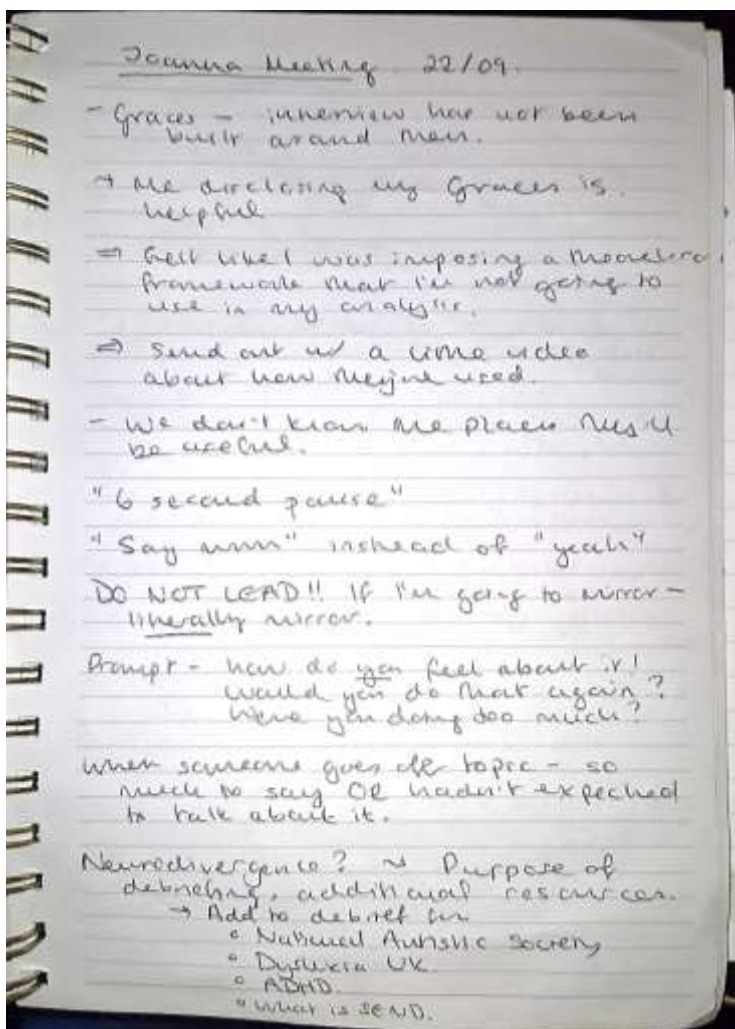 Joanna Meeting 22/09.
- Graces - interview has not been
built around them.
→ Me disclosing my Graces is
helpful
⇒ Felt like I was imposing a theoretical
framework that I'm not going to
use in my analysis.
⇒ Send out w/ a video
about how they're used.
- We don't know the places this'll
be useful.
"6 second pause"
"Say mm" instead of "yeah"
DO NOT LEAD!! If I'm going to mirror -
literally mirror.
Prompt - how do you feel about it!
would you do that again?
Were you doing too much?
When someone goes off topic - so
much to say OR hadn't expected
to talk about it.
Neurodivergence? ~ Purpose of
debriefing, additional resources.
→ Add to debrief
° National Autistic Society
° Dyslexia UK
° ADHD
° What is SEND.